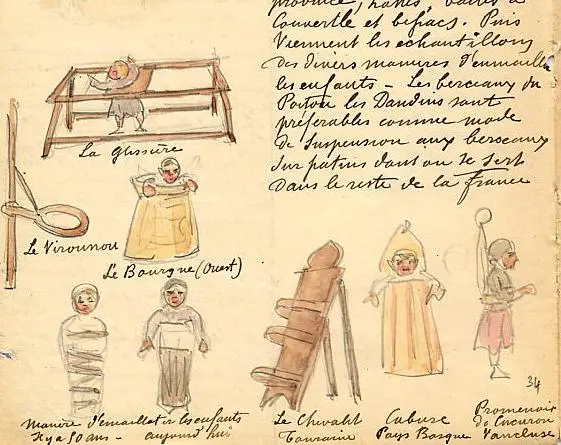 province, hattes,
Couvertle et besacs. Puis
Viennent les echantillons
des divers manieres d'enmailler
les enfants – Les berceaux du
Poitou les Dandins sont
préferables comme mode
de Suspension aux berceaux
sur patins dont on se sert
dans le reste de la france
La Glissière
Le Virounou
Le Bourgne (Ouest)
Maniere d'emailloter les enfants
Il y a 50 ans – aujourd'hui
Le Chevalet
Touraine
Cabuse
Pays Basque
Promenoir
de Cucuron
Vaucluse
34